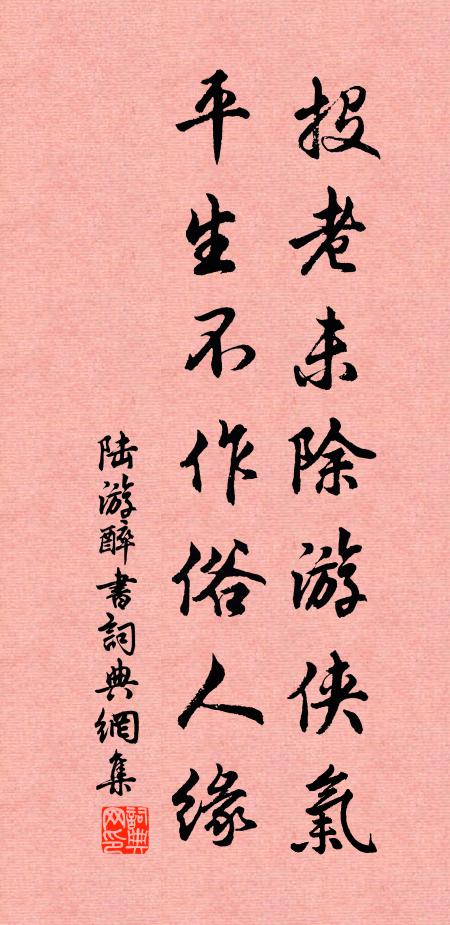 投老未除游侠氣
平生不作俗人緣
陆游醉書詞典網集
詞典网印